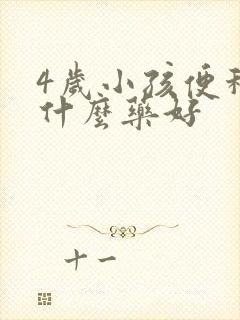 4歲小孩便秘
什麼藥好
十一